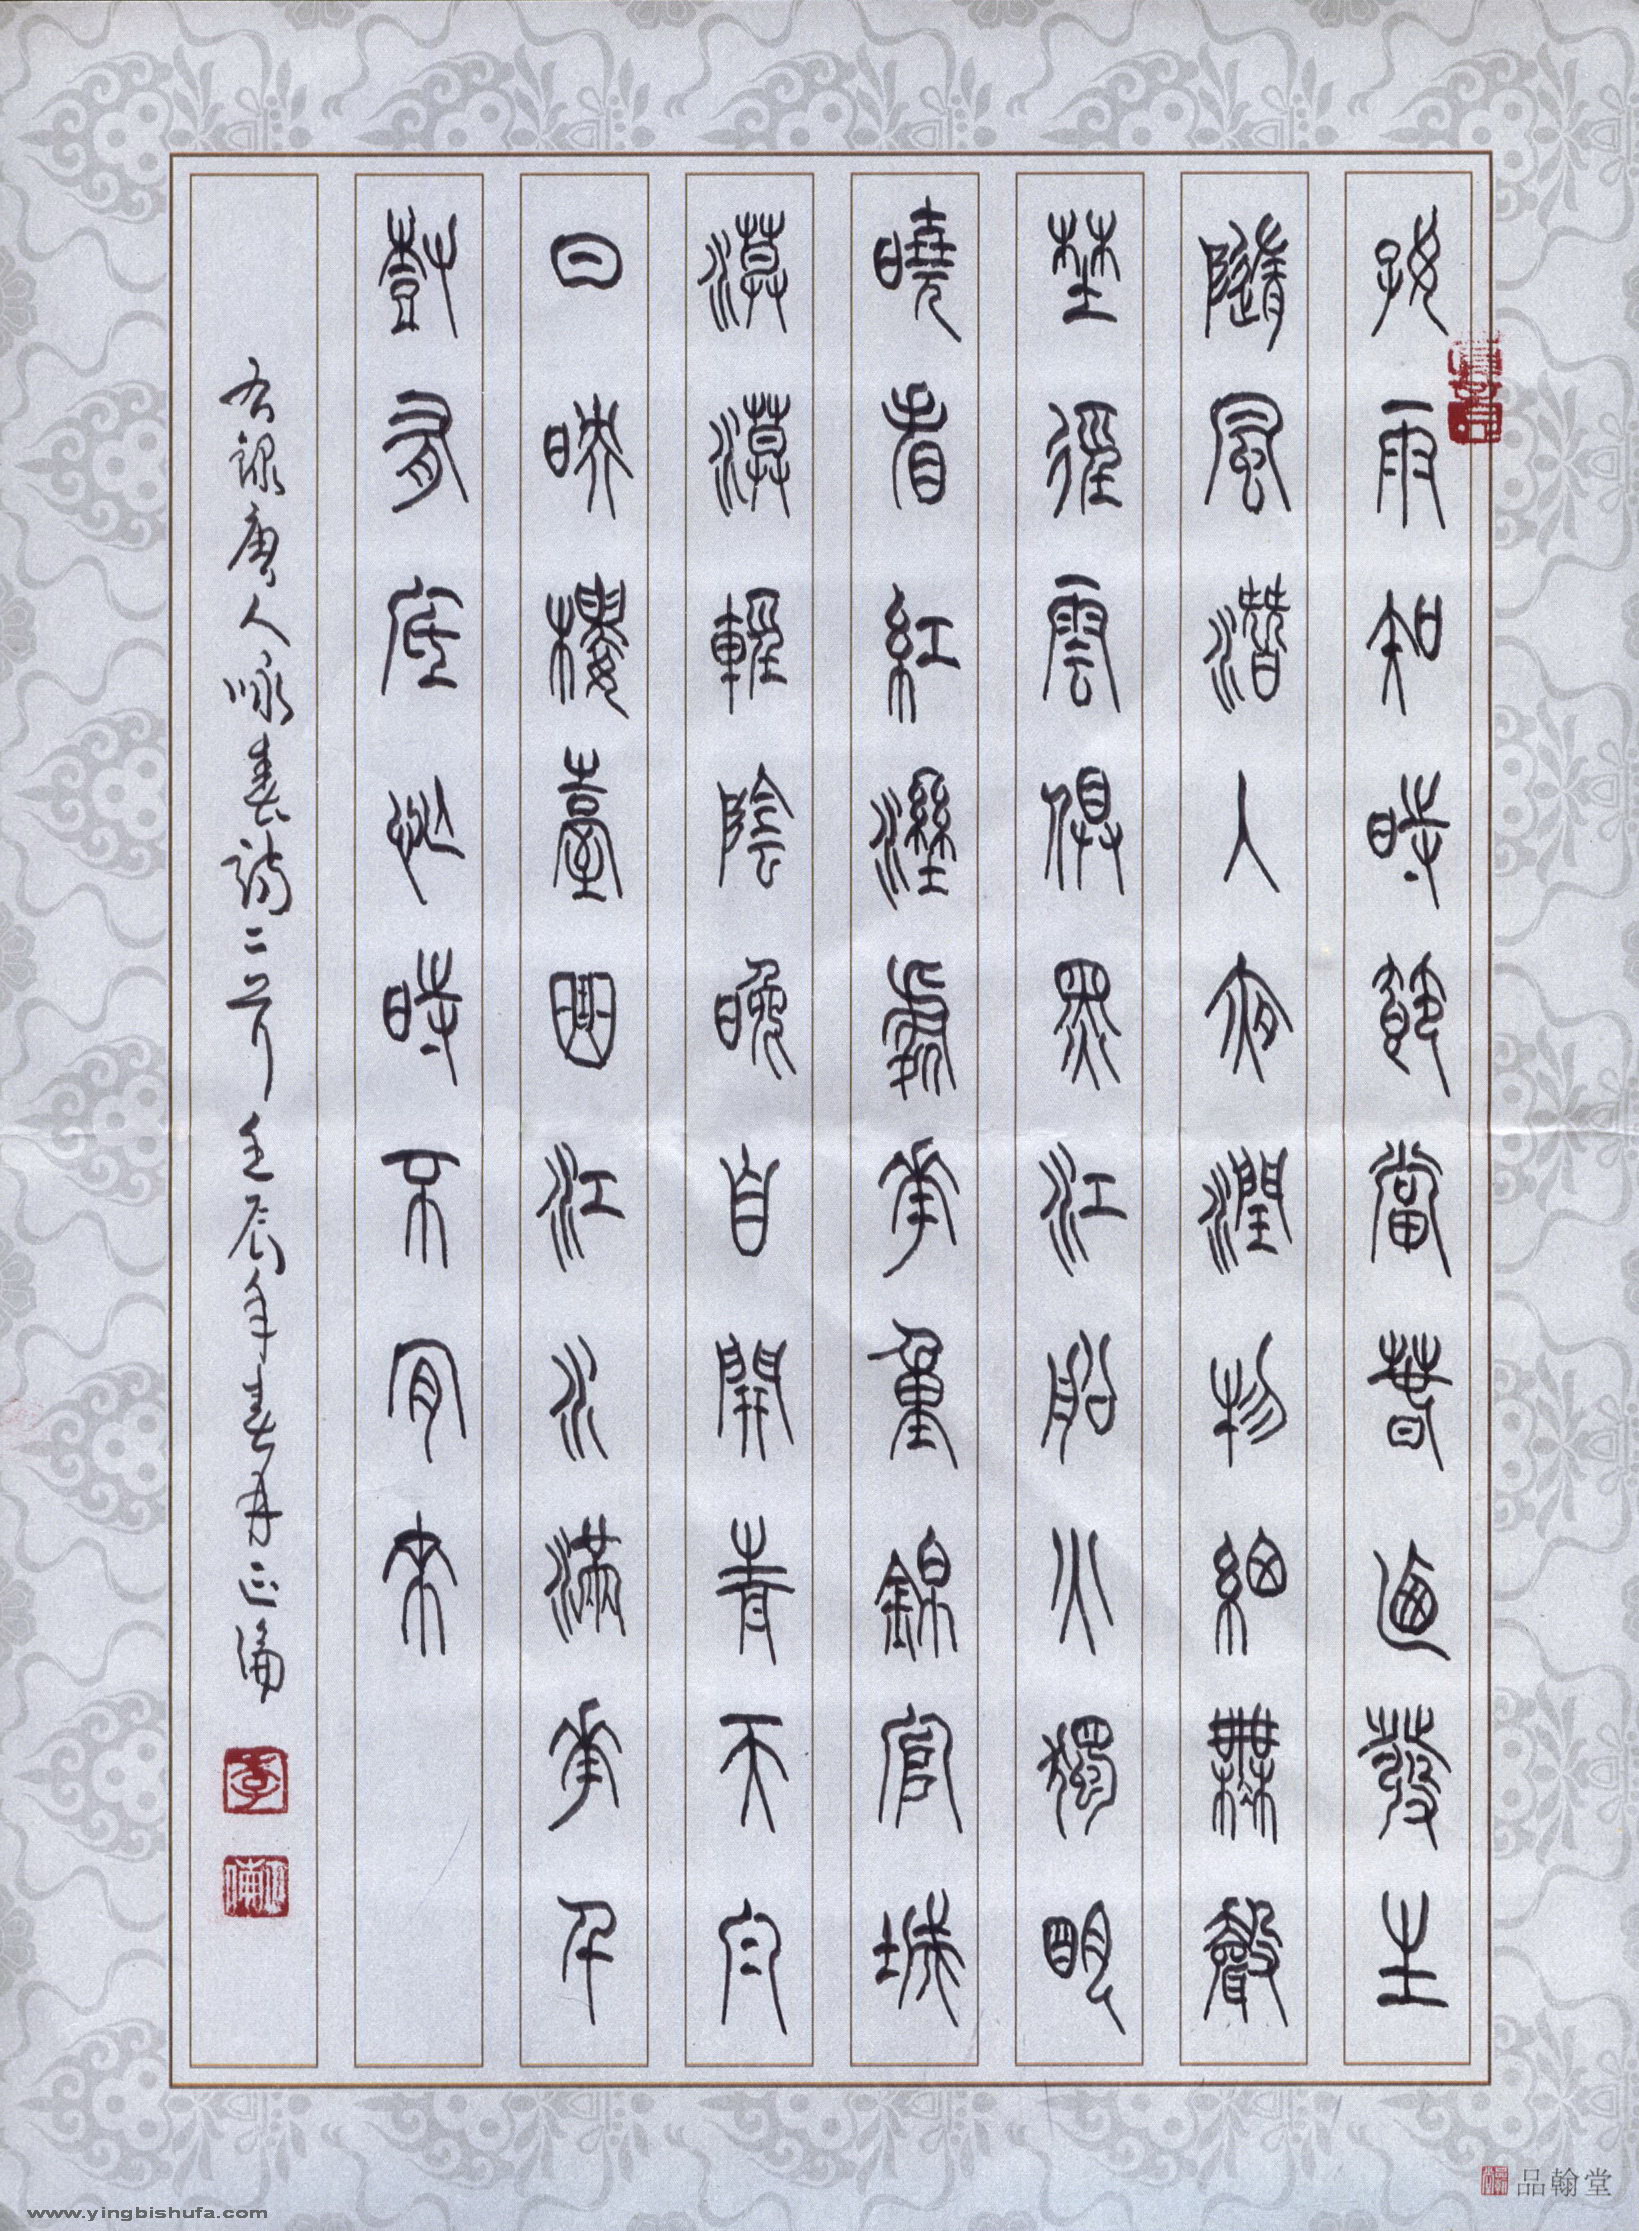 好雨知時節當春迺發生
隨風潛入夜潤物細無聲
埜徑雲俱黑江船火獨明
曉看紅溼處花重錦官城
漠漠輕陰晚自開青天白
日映樓臺曲江水滿花千
樹有底忙時不肯來
右錄唐人詠春詩二首壬辰年春月
李
品翰堂
www.yingbishufa.com